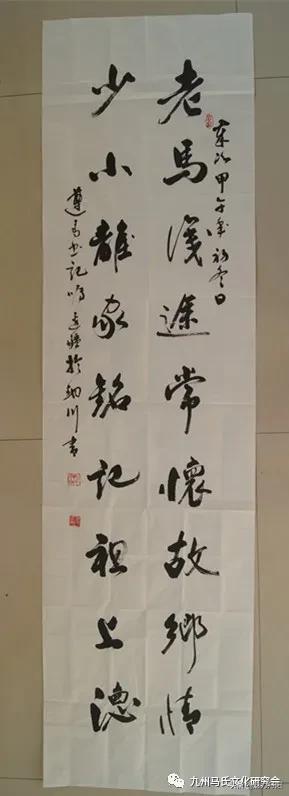 次甲午年初冬日
老馬識途常懷故鄉情
少小離家銘記祖上德
遵 於 川書
九州马氏文化研究会